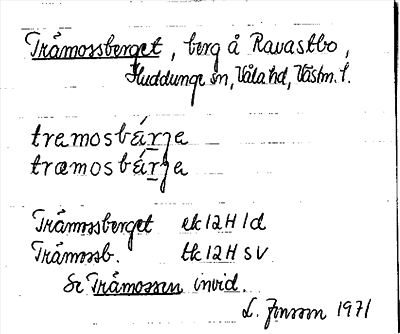 Tråmossberget, berg å Ravastbo,
Huddunge sn, Våla hd, Västm. l.
tremosbárja
træmosbárja
Tråmossberget ek 12 H 1d
Tråmossb. tk 12 H SV
Se Tråmossen invid.
L. Jonsson 1971